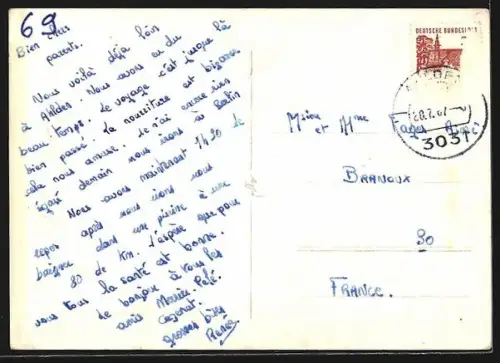 69
Bien chers
parents.
Nous voilà déjà loin
à Ahlden. Nous avons eu du
beau temps. Le voyage c'est jusque là
bien passé. La nourriture est bizarre
cela nous amuse. Je n'ai encore rien
égaré demain nous irons à Berlin
Nous avons maintenant 1h30 de
repos après nous irons nous
baigner dans une piscine à une
80 de km. J'espère que pour
vous tous la santé est bonne.
de bonjour à tous les
amis
grosses bises
René
DEUTSCHE BUNDESPOST
20.7.67
3031
et Mme
BRANOUX
30
FRANCE.